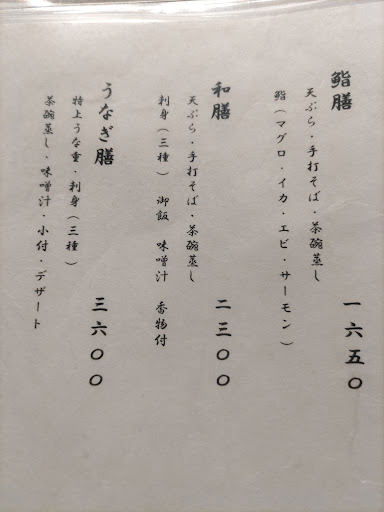 鮨膳
天ぷら・手打そば・茶碗蒸し
鮨(マグロ・イカ・エビ・サーモン)
一六五〇
和膳
天ぷら・手打そば・茶碗蒸し
刺身(三種) 御飯 味噌汁 香物付
二三〇〇
うなぎ膳
特上うな重・刺身(三種)
茶碗蒸し・味噌汁・小付・デザート
三六〇〇